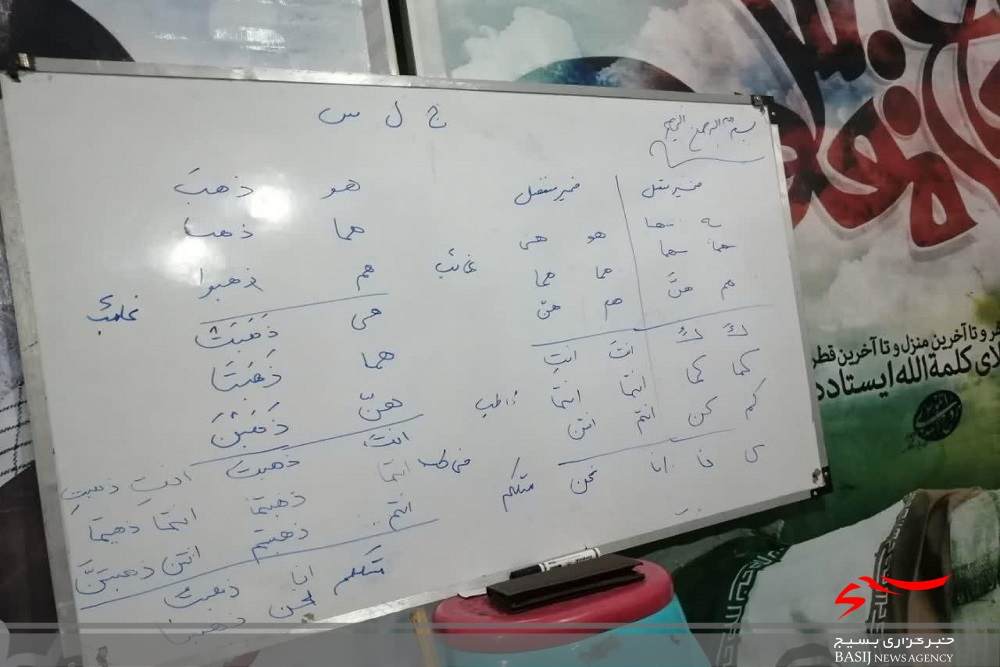 بسم الله الرحمن الرحیم
ج ل س
ضمیر متصل
ـه ـها
ـهما ـهما
ـهم ـهنَّ
كَ كِ
كما كما
كم كن
ی نا
ضمیر منفصل
هو هی
هما هما
هم هنّ
غائب
انتَ انتِ
انتما انتما
انتم انتن
مخاطب
انا نحن
متکلم
هو ذهبَ
هما ذهبا
هم ذهبوا
غائب
هی ذَهَبَتْ
هما ذَهَبَتَا
هنّ ذَهَبْنَ
انتَ ذهبتَ انتِ ذهبتِ
مخاطب
انتما ذهبتما انتما ذهبتما
انتم ذهبتم انتن ذهبتنَّ
متکلم انا ذهبتُ
نحن ذهبنا
و تا آخرین منزل و تا آخرین قطر
لای کلمة الله ایستاده
بسیج
خبرگزاری بسیج
BASIJ NEWS AGENCY